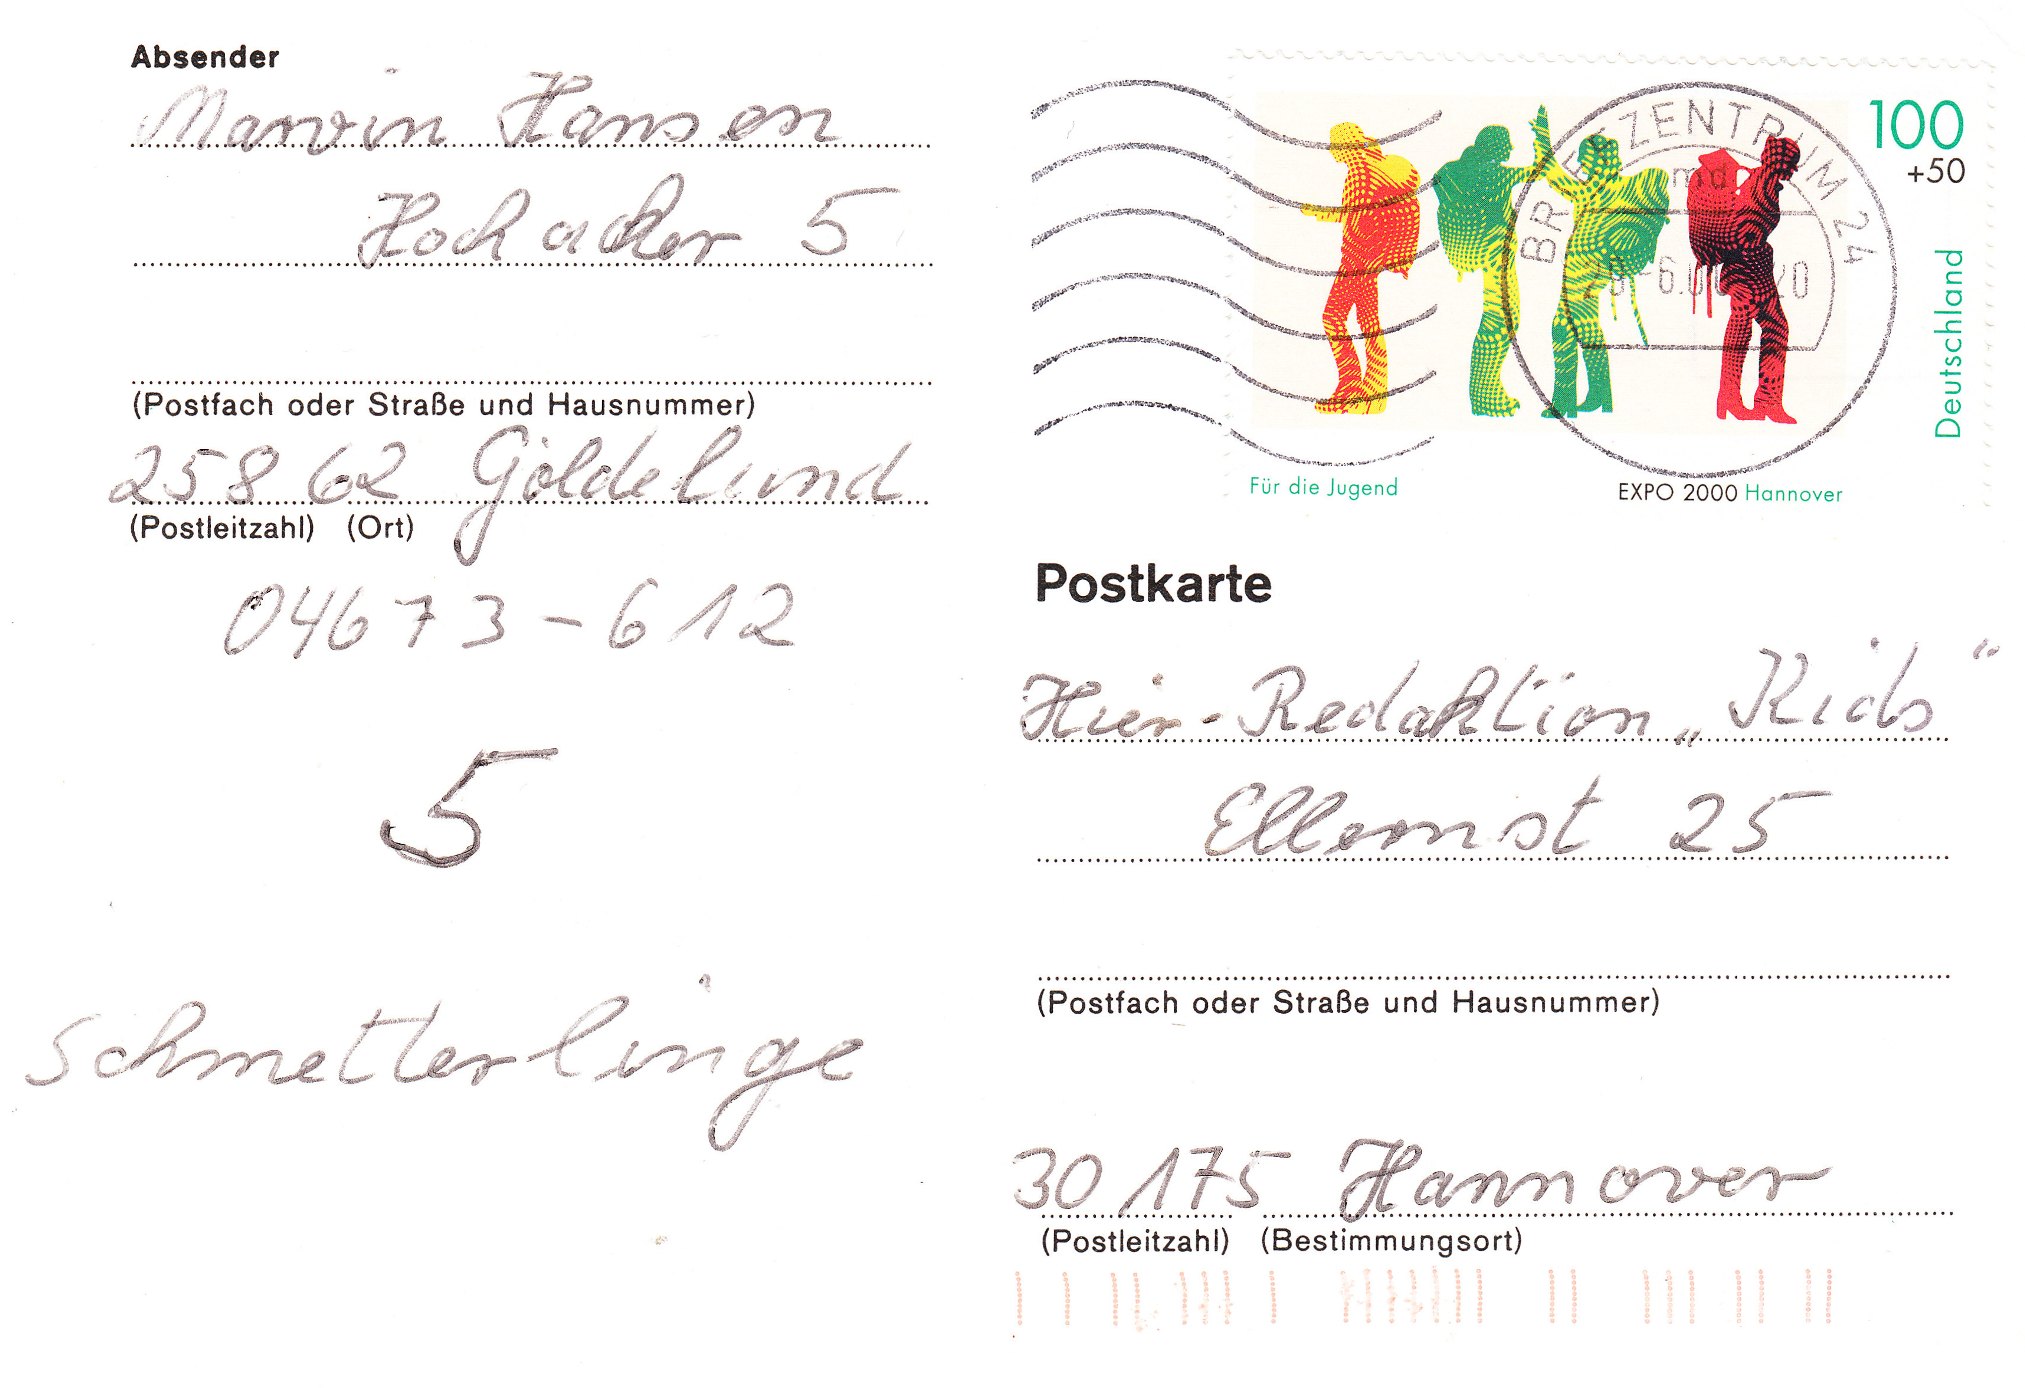 Absender
Marvin Hansen
Hochacker 5
(Postfach oder Straße und Hausnummer)
25862 Goldelund
(Postleitzahl) (Ort)
04673-612
5
schmetterlinge
100
+50
Deutschland
BRIEFZENTRUM 24
Für die Jugend
EXPO 2000 Hannover
Postkarte
Hier-Redaktion „Kids“
Ellernst 25
(Postfach oder Straße und Hausnummer)
30175 Hannover
(Postleitzahl) (Bestimmungsort)